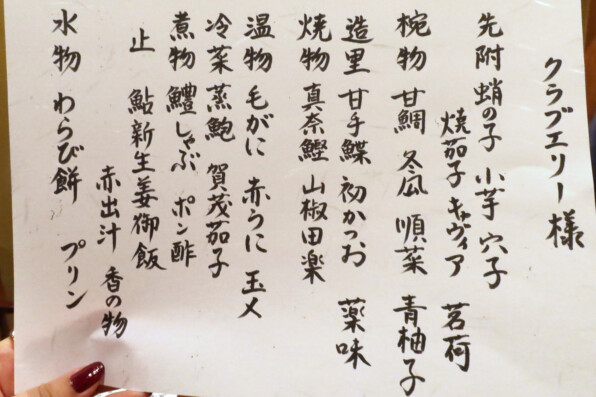 クラブエリー様
先附 蛸の子 小芋 穴子
焼茄子 キャヴィア 茗荷
椀物 甘鯛 冬瓜 順菜 青柚子
造里 甘手鰈 初かつお 薬味
焼物 真奈鰹 山椒田楽
温物 毛がに 赤うに 玉〆
冷菜 蒸鮑 賀茂茄子
煮物 鱧しゃぶ ポン酢
止 鮎新生姜御飯
赤出汁 香の物
水物 わらび餅 プリン